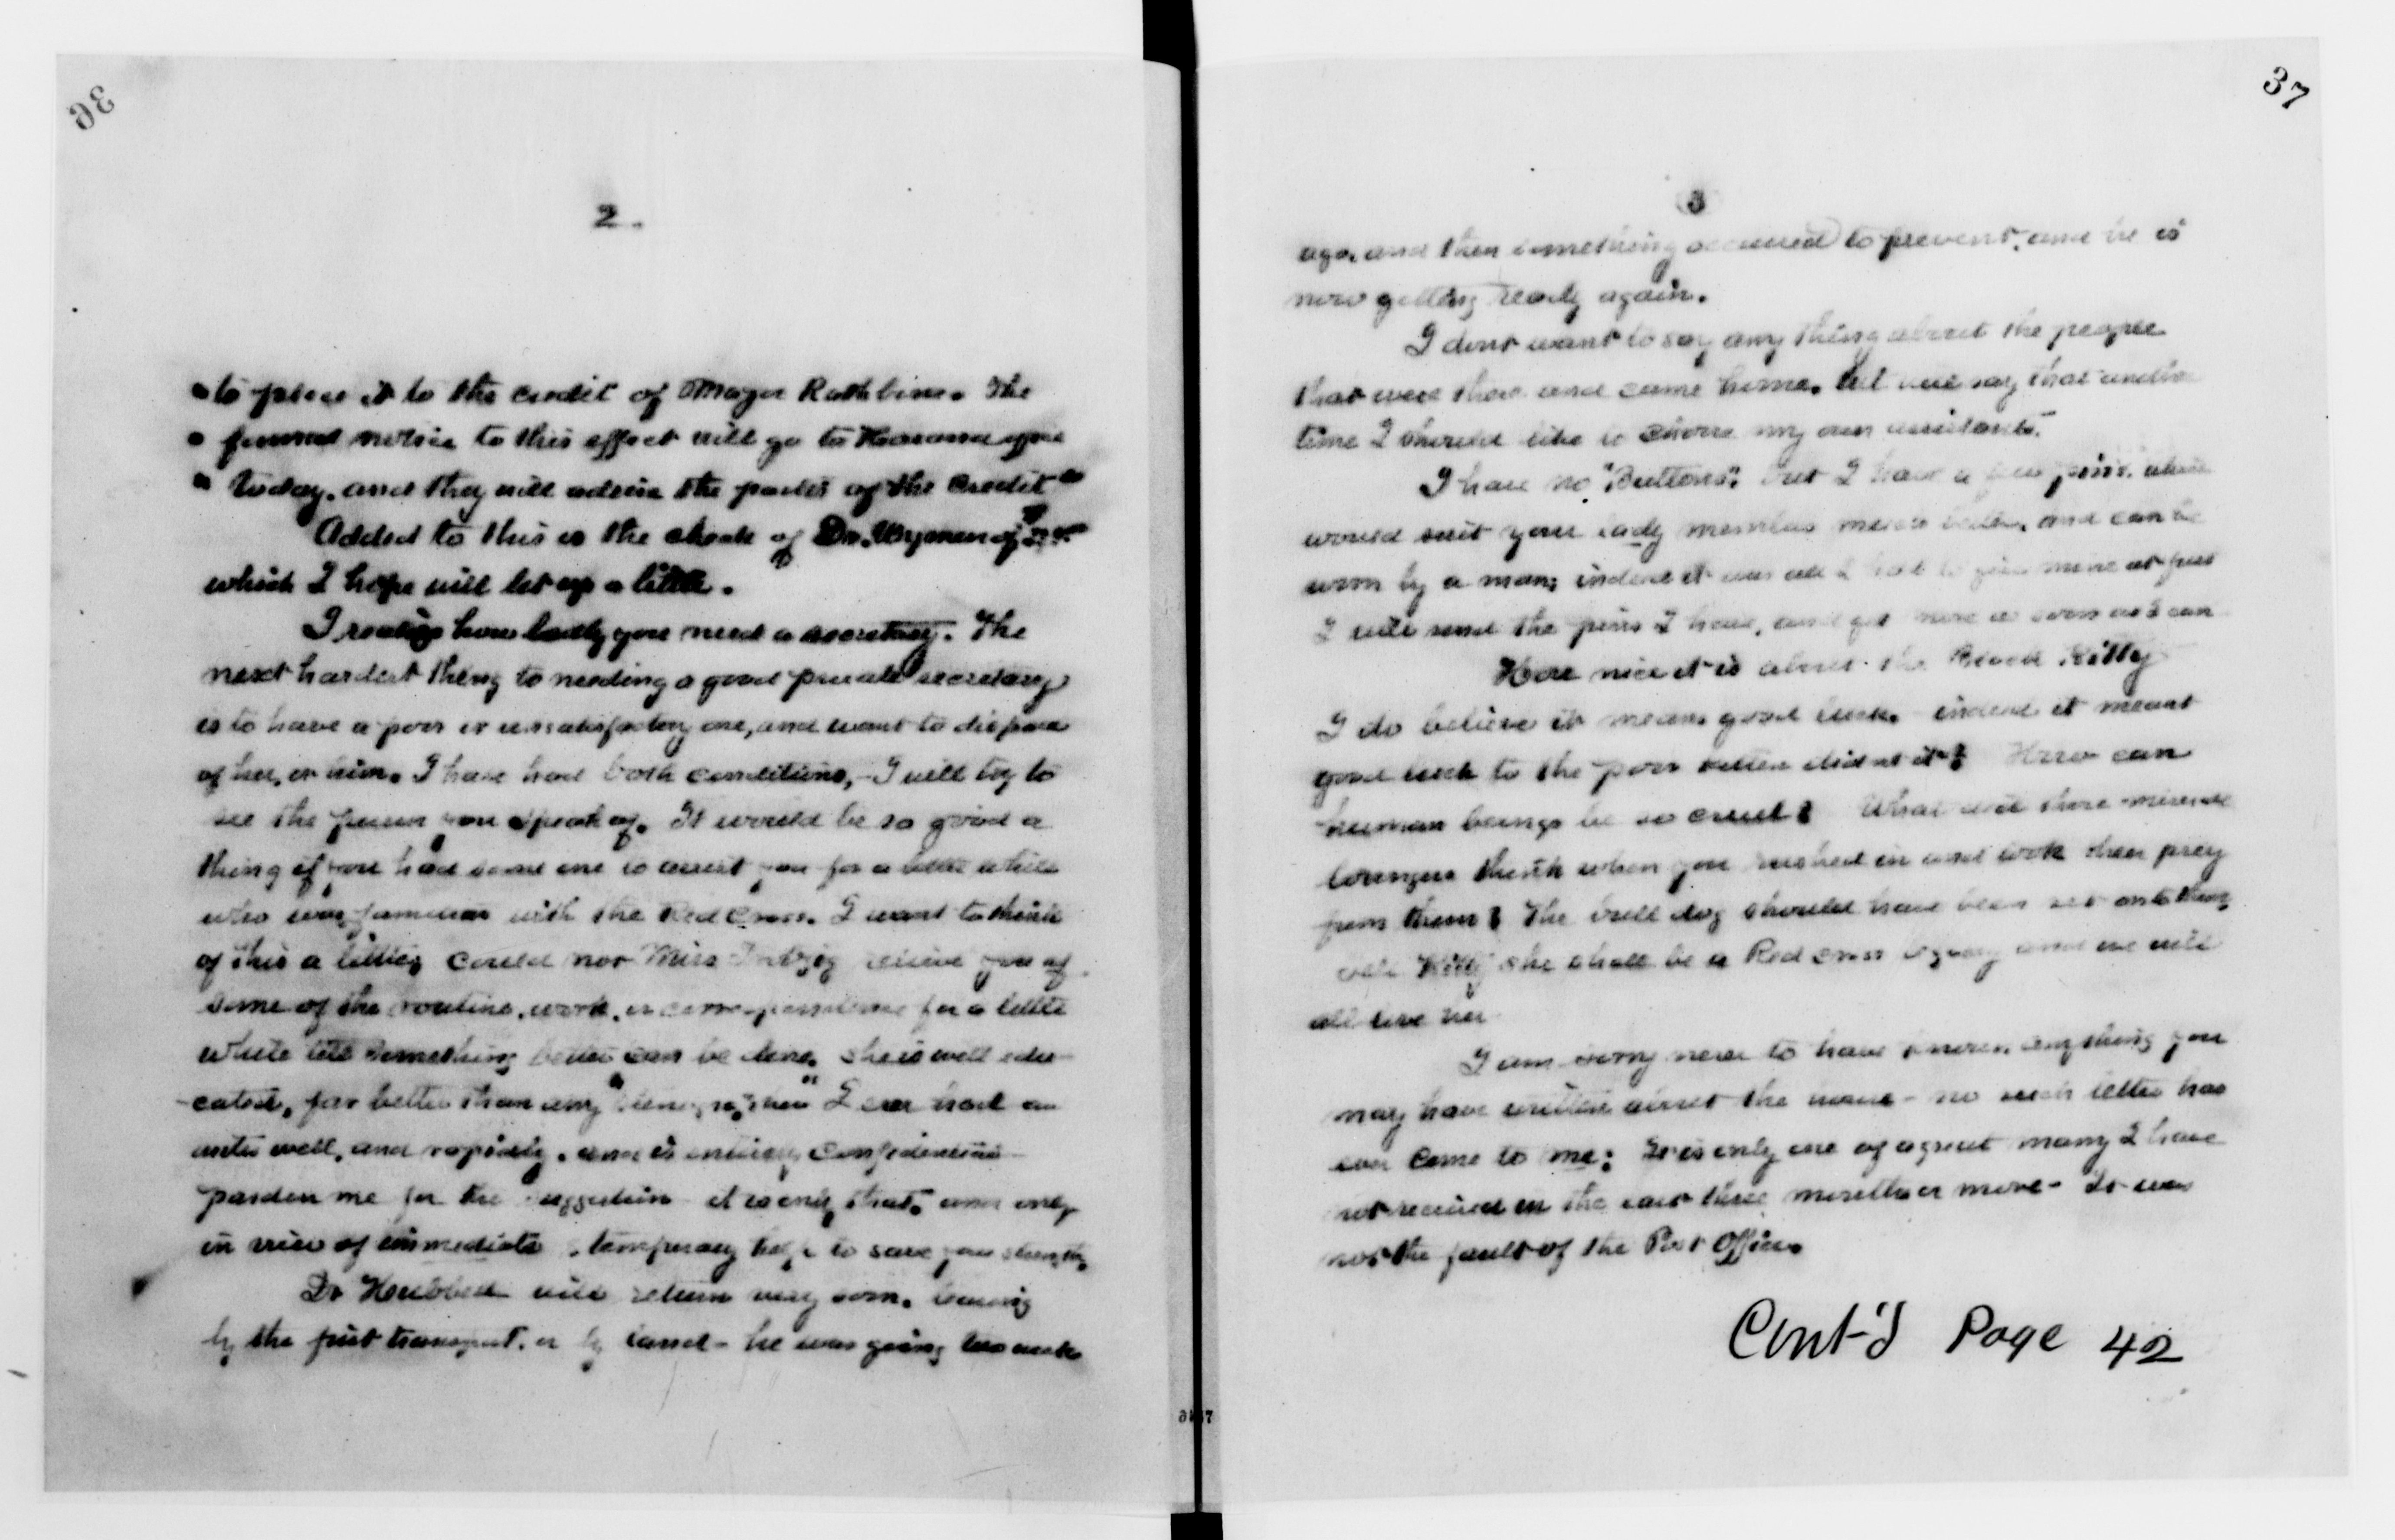 36
2.
" to place it to the credit of Major Rathbone. The
" formal notice to this effect will go to Havana office
" today, and they will advise the parties of the credit "
Added to this is the check of Dr. Wyman of
which I hope will let up a little.
I realize how badly you need a secretary. The
next hardest thing to needing a good private secretary
is to have a poor or unsatisfactory one, and want to dispose
of her, or him. I have had both conditions, - I will try to
see the person you speak of. It would be so good a
thing if you had some one to assist you for a little while
who was familiar with the Red Cross. I want to think
of this a little; could not Miss relieve you of
some of the routine, work, or correspondence for a little
while till something better can be done. She is well edu-
-cated, far better than any "stenographer" I ever had
writes well, and rapidly. and is entirely confidential -
pardon me for the suggestion - it is only that, and only
in view of immediate & temporary help to save your strength.
Dr Hubbell will return very soon. leaving
by the first transport. or by land - he was going two weeks
37
3
ago, and then something occurred to prevent, and he is
now getting ready again.
I dont want to say any thing about the people
that were there and came home. but will say that another
time I should like to choose my own assistants.
I have no "Buttons", but I have a few pins. which
would suit your lady members much better, and can be
worn by a man; indeed it was all I had to give mine at first
I will send the pins I have, and get more as soon as I can
How nice it is about the Black Kitty
I do believe it means good luck. indeed it meant
good luck to the poor kitten didnt it? How can
human beings be so cruel? What did those miserable
loungers think when you rushed in and took their prey
from them? The bull dog should have been set onto them,
Kitty she shall be a Red Cross legacy and we will
all love her
I am sorry never to have known anything you
may have written about the - no such letter has
ever come to me: It is only one of a great many I have
not received in the last three months or more - It was
not the fault of the Post Office.
Cont'd Page 42